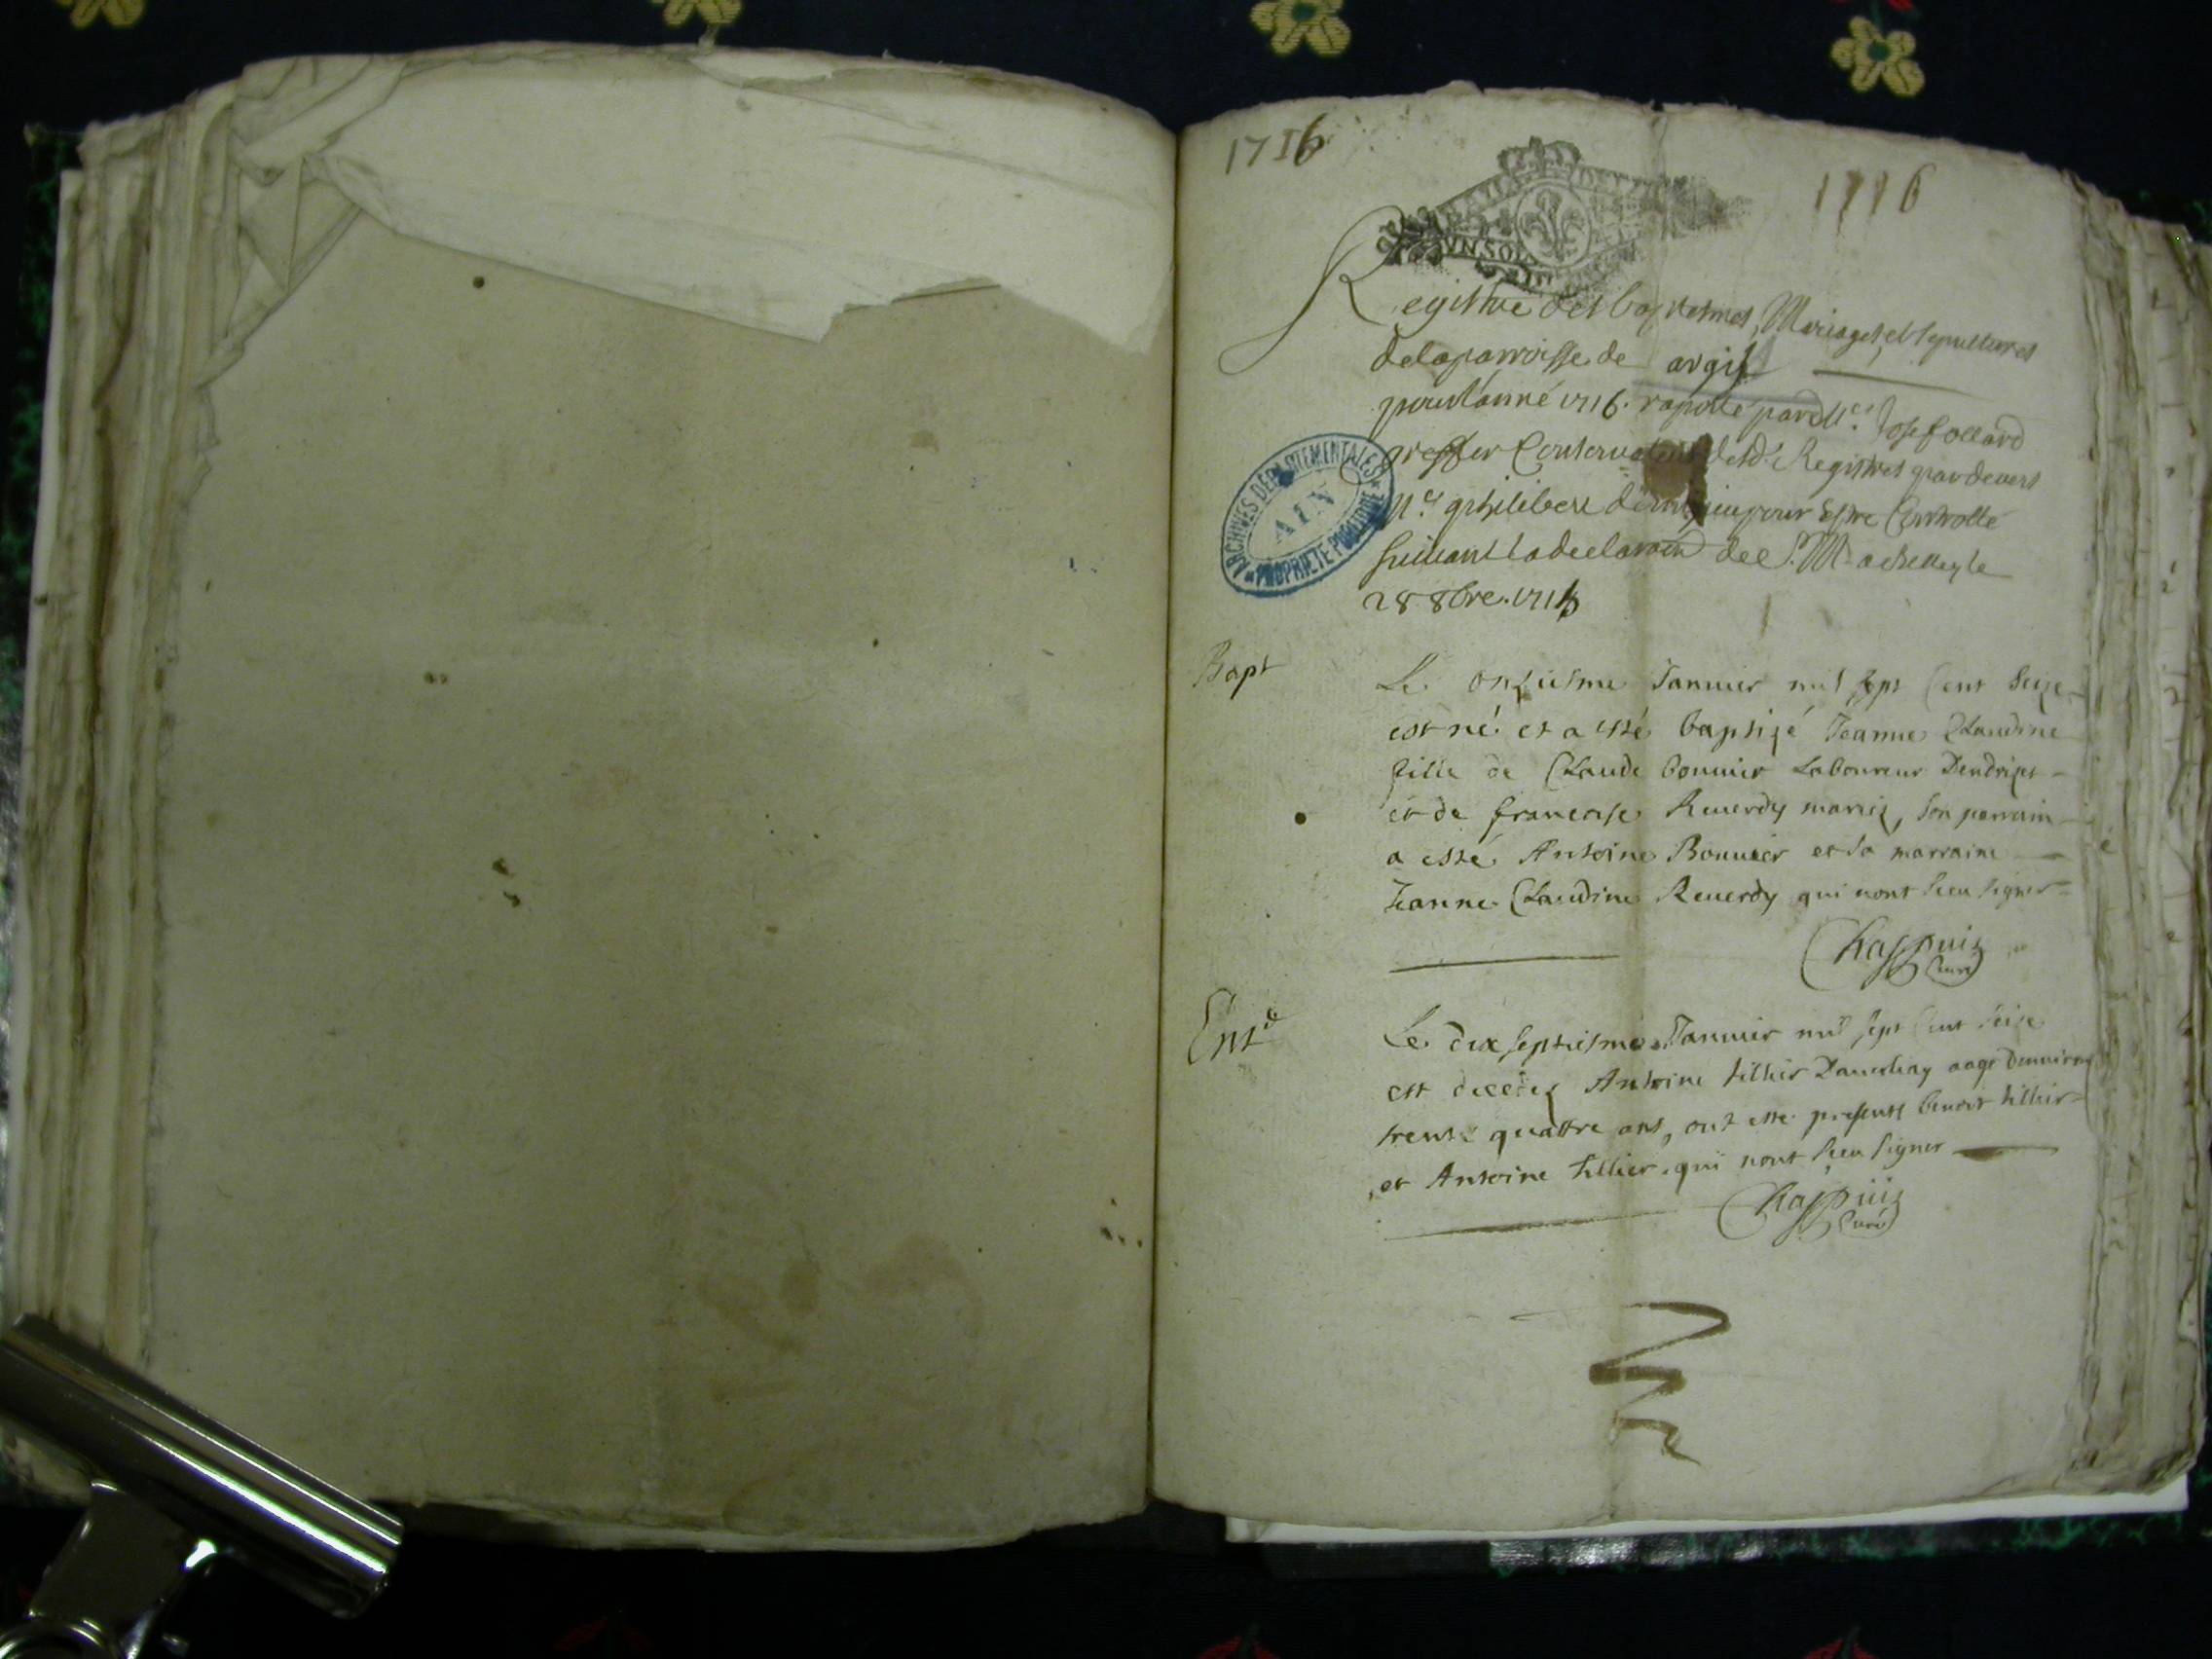 1716
1716
VN SOL
Registre des baptesmes, Mariages, et sepultures
de la parroisse de argis
pour l'anné 1716. raporté par Me. Josef ollard
greffier Conservateur desd. Registres par devers
Me. philibert pour Estre Controllé
suivant la declaraon de S.
28 8bre. 1716
ARCHIVES DÉPARTEMENTALES
AIN
PROPRIÉTÉ PUBLIQUE
Bapt
Le onziesme Januier mil sept Cent Seize
est né et a esté baptizé Jeanne Claudine
fille de Claude bonnier Laboureur
et de francoise Reuerdy mariez, son parrain
a esté Antoine Bonnier et sa marraine
Jeanne Claudine Reuerdy qui nont sceu signer
Chappuiz
Curé
Entt
Le dix septiesme Januier mil sept Cent Seize
est decedez Antoine tillier aagé denuiron
trente quattre ans, ont esté presents benoit tillier
et Antoine tillier qui nont sceu signer
Chappuiz
Curé